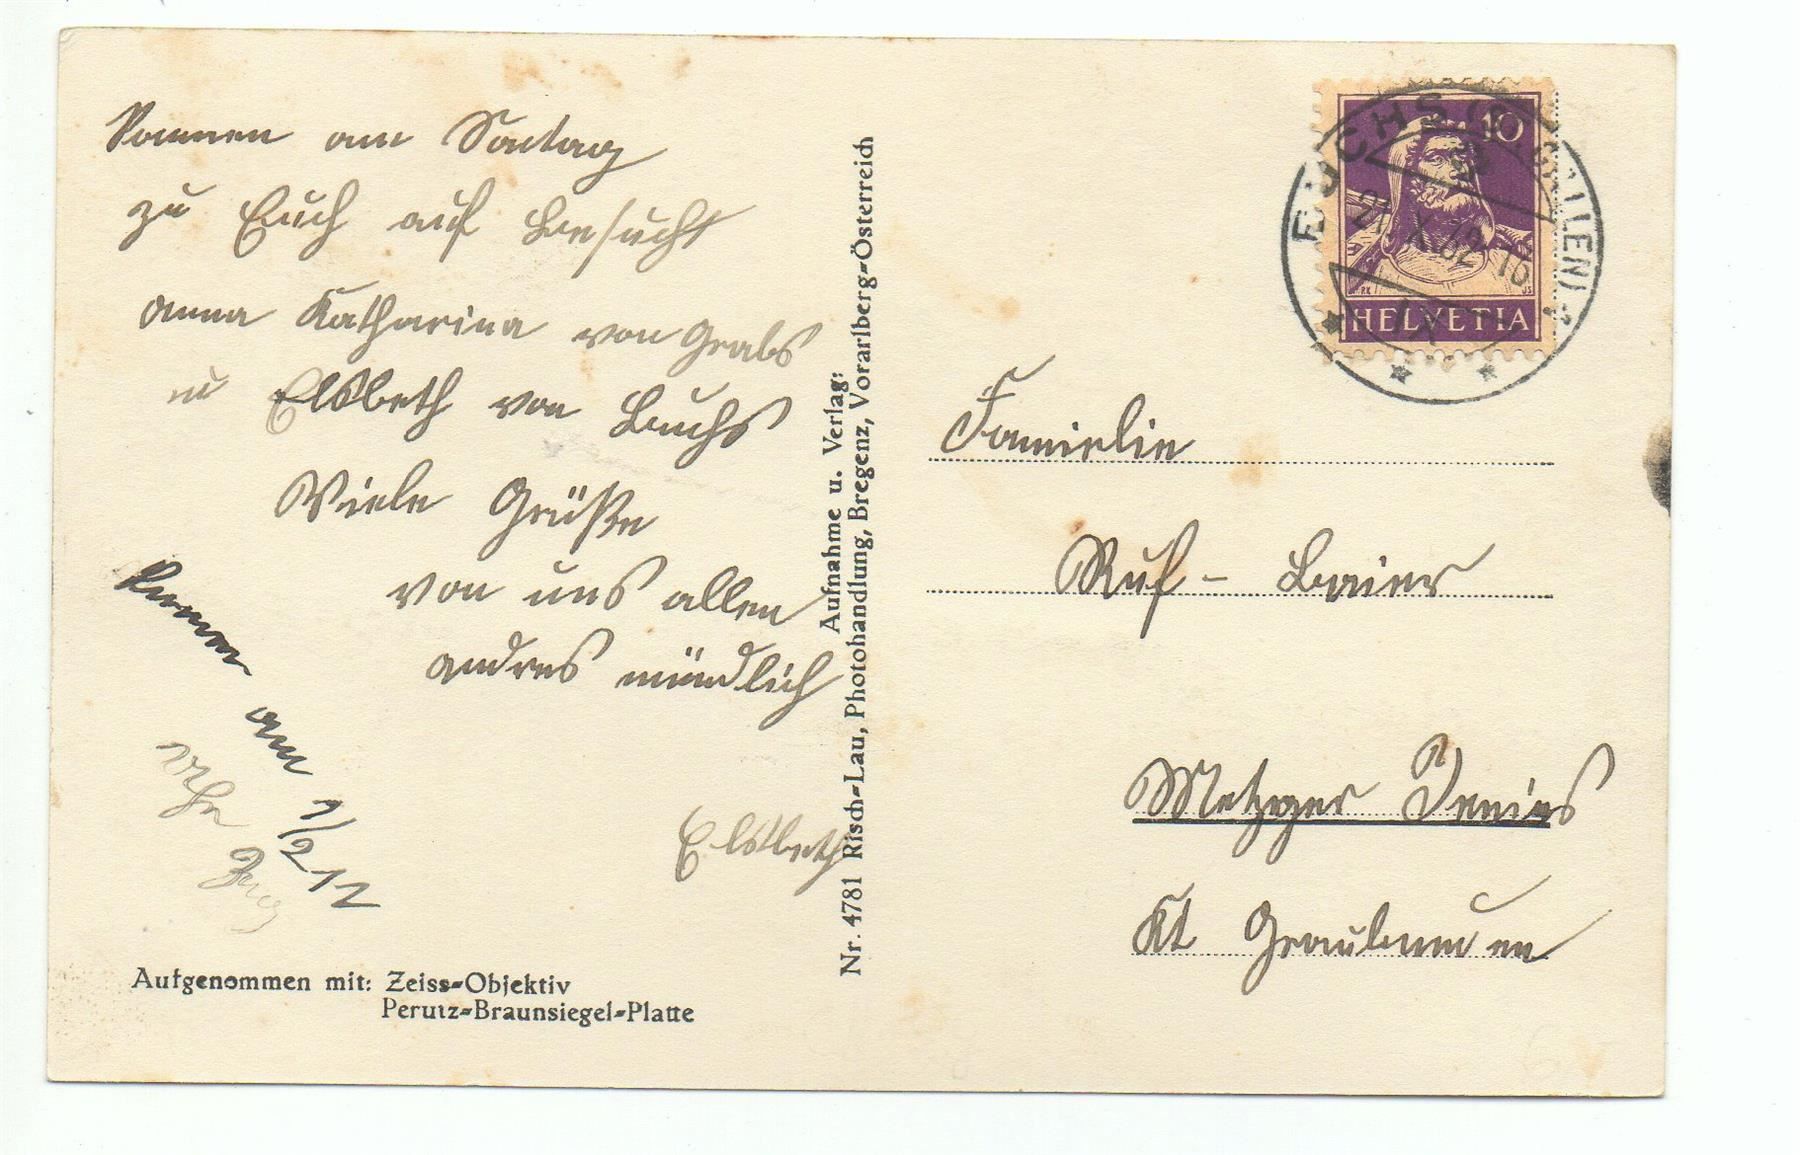 Kommen am Sontag
zu Euch auf Besucht
Anna Katharina von Grabs
u Elsbeth von Buchs
Viele Grüße
von uns allen
andres mündlich
Elsbeth
Kommen am 1/2 12
Uhr
Zug
Aufgenommen mit: Zeiss=Objektiv
Perutz=Braunsiegel=Platte
Aufnahme u. Verlag:
Nr. 4781 Risch=Lau, Photohandlung, Bregenz, Vorarlberg=Österreich
10
HELVETIA
BUCHS (ST. GALLEN)
21.X.32.16
IX
Famielie
Ruf - Baier
Metzger Jenins
Kt Graubunden